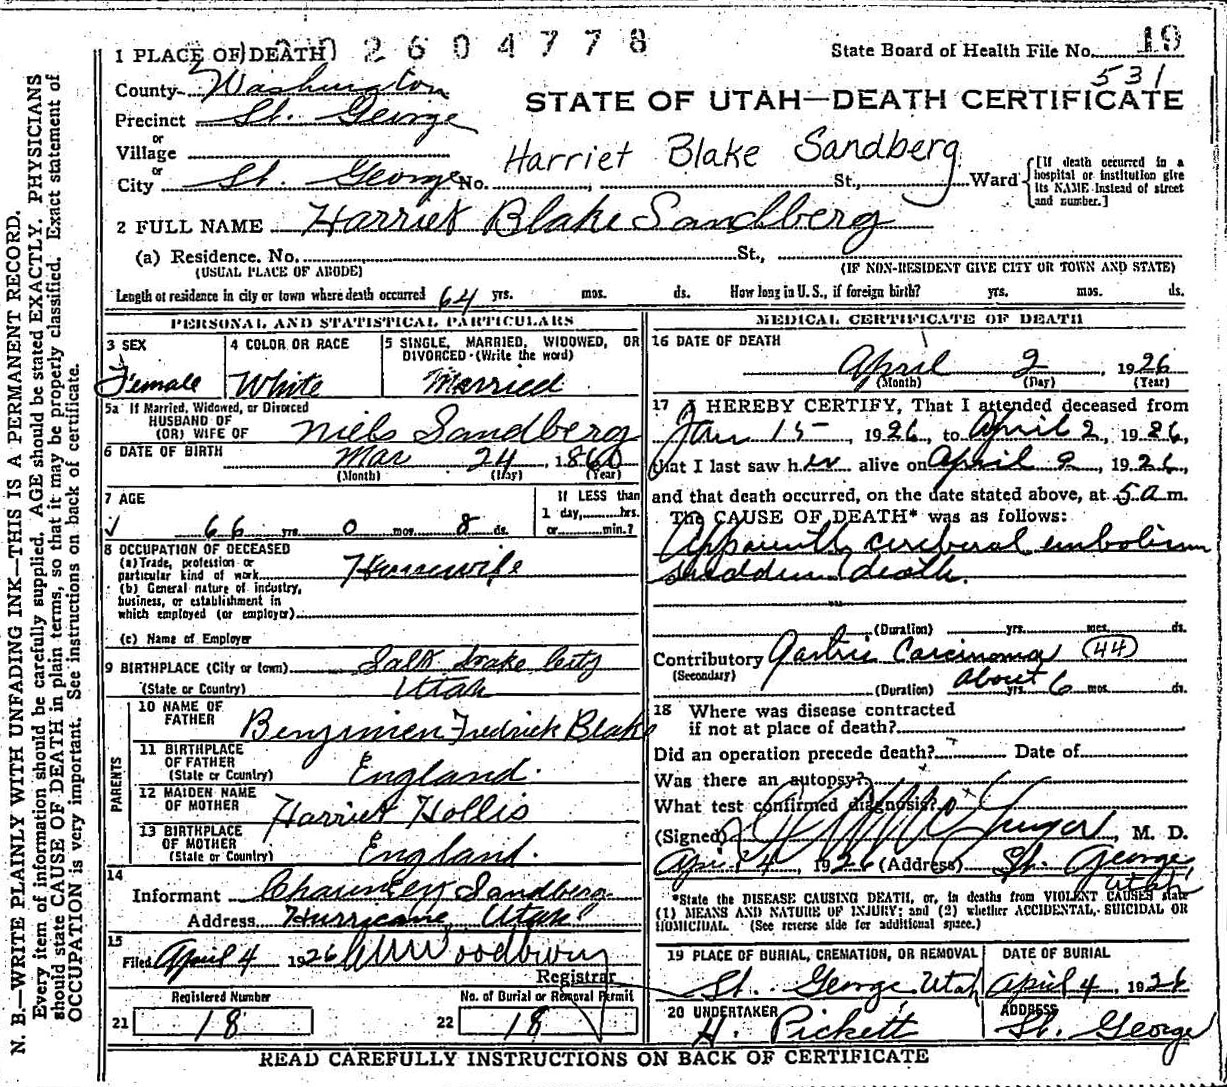 1 PLACE OF DEATH 2604778 State Board of Health File No. 19
531
County Washington
STATE OF UTAH—DEATH CERTIFICATE
Precinct St. George
or
Village
Harriet Blake Sandberg
or
City St. George No. St., Ward
[If death occurred in a
hospital or institution give
its NAME instead of street
and number.]
2 FULL NAME Harriet Blake Sandberg
(a) Residence. No. St.,
(USUAL PLACE OF ABODE) (IF NON-RESIDENT GIVE CITY OR TOWN AND STATE)
Length of residence in city or town where death occurred 64 yrs. mos. ds. How long in U. S., if foreign birth? yrs. mos. ds.
PERSONAL AND STATISTICAL PARTICULARS
3 SEX
Female
4 COLOR OR RACE
White
5 SINGLE, MARRIED, WIDOWED, OR
DIVORCED (Write the word)
Married
5a If Married, Widowed, or Divorced
HUSBAND OF
(OR) WIFE OF Niels Sandberg
6 DATE OF BIRTH Mar 24 1860
(Month) (Day) (Year)
7 AGE
66 yrs. 0 mos. 8 ds.
If LESS than
1 day, hrs.
or min.?
8 OCCUPATION OF DECEASED
(a) Trade, profession or
particular kind of work Housewife
(b) General nature of industry,
business, or establishment in
which employed (or employer)
(c) Name of Employer
9 BIRTHPLACE (City or town) Salt Lake City
(State or Country) Utah
PARENTS
10 NAME OF
FATHER Benjmien Fredrick Blake
11 BIRTHPLACE
OF FATHER
(State or Country) England.
12 MAIDEN NAME
OF MOTHER Harriet Hollis
13 BIRTHPLACE
OF MOTHER
(State or Country) England.
14
Informant Chauncey Sandberg
Address Hurricane, Utah
15
Filed April 4 1926 Woodbury
Registrar
Registered Number No. of Burial or Removal Permit
21 18 22 18
MEDICAL CERTIFICATE OF DEATH
16 DATE OF DEATH
April 2, 1926
(Month) (Day) (Year)
17 I HEREBY CERTIFY, That I attended deceased from
Jan 15, 1926, to April 2, 1926,
that I last saw her alive on April 2, 1926,
and that death occurred, on the date stated above, at 5 a m.
The CAUSE OF DEATH* was as follows:
Apparently cerebral embolism
sudden death.
(Duration) yrs. mos. ds.
Contributory Gastric Carcinoma (44)
(Secondary)
(Duration) About yrs. 6 mos. ds.
18 Where was disease contracted
if not at place of death?
Did an operation precede death? Date of
Was there an autopsy?
What test confirmed diagnosis?
(Signed) M. D.
April 4 1926 (Address) St. George,
Utah
*State the DISEASE CAUSING DEATH, or, in deaths from VIOLENT CAUSES state
(1) MEANS AND NATURE OF INJURY; and (2) whether ACCIDENTAL, SUICIDAL OR
HOMICIDAL. (See reverse side for additional space.)
19 PLACE OF BURIAL, CREMATION, OR REMOVAL
St. George, Utah
DATE OF BURIAL
April 4, 1926
20 UNDERTAKER
H. Pickett
ADDRESS
St. George
READ CAREFULLY INSTRUCTIONS ON BACK OF CERTIFICATE
N. B.—WRITE PLAINLY WITH UNFADING INK—THIS IS A PERMANENT RECORD.
Every item of information should be carefully supplied. AGE should be stated EXACTLY. PHYSICIANS
should state CAUSE OF DEATH in plain terms, so that it may be properly classified. Exact statement of
OCCUPATION is very important. See instructions on back of certificate.